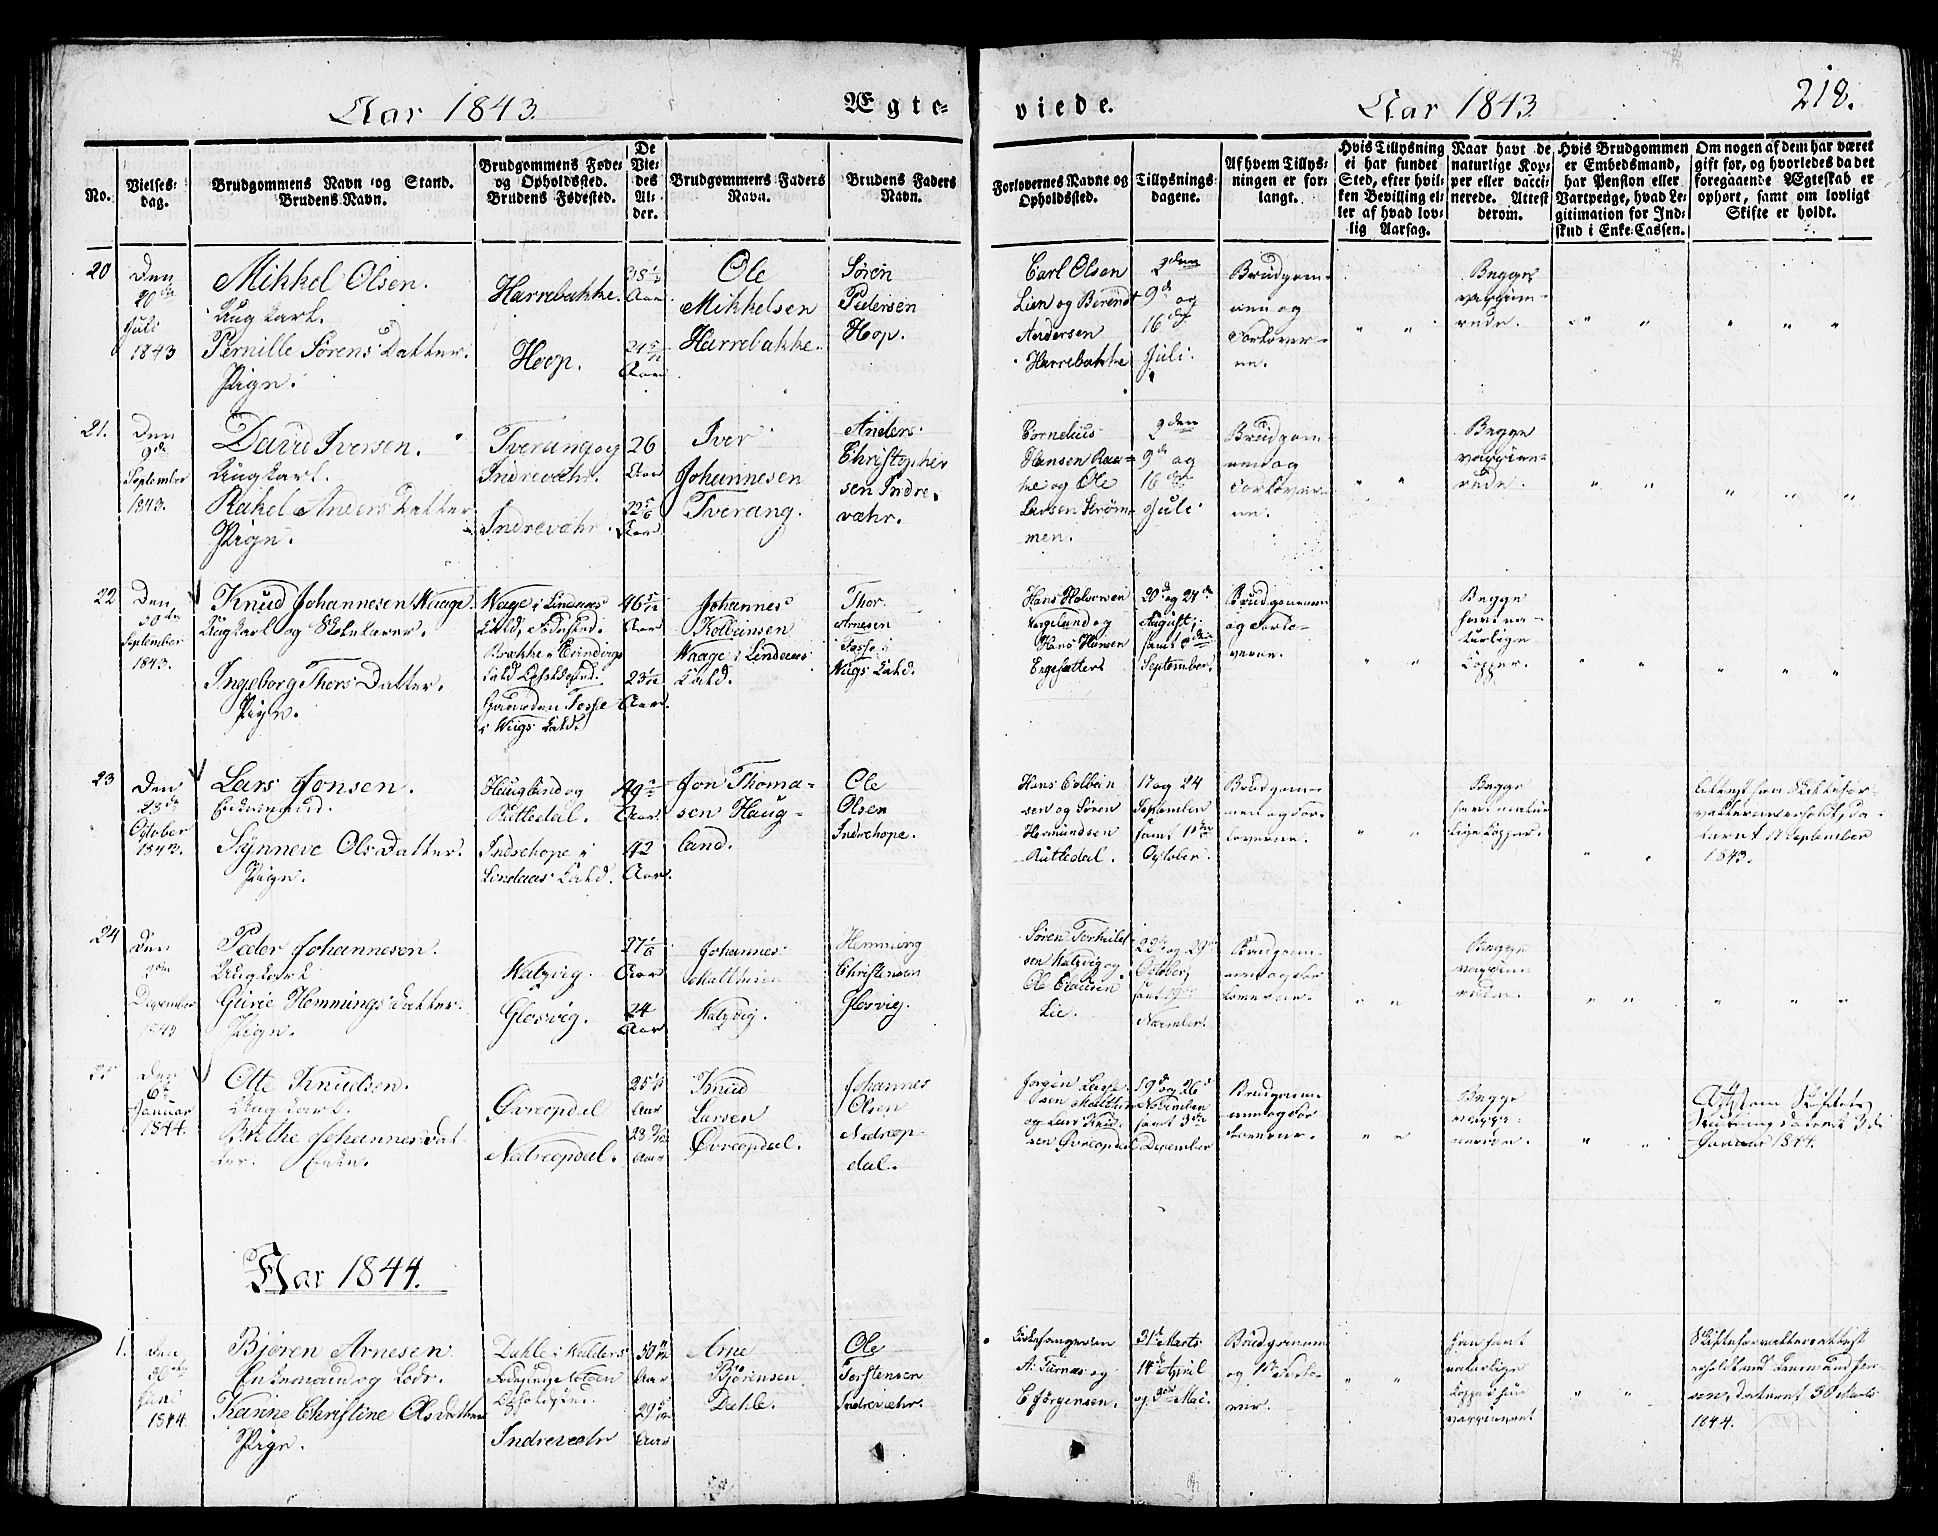 Aar 1843.
Ægte=
viede.
Aar 1843.
218.
No.
Vielses=
dag.
Brudgommens Navn og Stand.
Brudens Navn.
Brudgommens Føde=
og Opholdssted.
Brudens Fødested.
De
Vie=
des
Al=
der.
Brudgommens Faders
Navn.
Brudens Faders
Navn.
Forlovernes Navne og
Opholdssted.
Tillysnings
dagene.
Af hvem Tillys=
ningen er for=
langt.
Hvis Tillysning
ei har fundet
Sted, efter hvil=
ken Bevilling el=
ler af hvad lov=
lig Aarsag.
Naar havt de
naturlige Kop=
per eller vacci=
nerede. Attest
derom.
Hvis Brudgommen
er Embedsmand,
har Pension eller
Vartpenge, hvad Le=
gitimation for Ind=
skud i Enke-Cassen.
Om nogen af dem har været
gift før, og hvorledes da det
foregaaende Ægteskab er
ophørt, samt om lovligt
Skifte er holdt.
20
Den
20de
Juli
1843
Mikkel Olsen.
Ungkarl.
Pernille Sørens Datter.
Pige.
Harrebakke.
Hoop.
Aar
Aar
Ole
Mikkelsen
Harrebakke.
Søren
Pedersen
Hop.
Carl Olsen
Lien og Berendt
Andersen
Harrebakke
2den
9de og
16de
Juli.
Brudgom=
men og
Forlover=
ne.
Begge
vaccine=
rede.
21.
Den
9de
September
1843.
David Iversen.
Ungkarl.
Rakel Anders Datter
Pige.
Tverang og
Indrevær.
Indrevæhr.
26
Aar
Aar
Iver
Johannesen
Tverang.
Anders
Christopher
sen Indre=
væhr.
Cornelius
Hansen
og Ole
Larsen Strøm=
men.
2den
9de og
16de
Juli
Brudgom=
men og
Forlover=
ne.
Begge
vaccine=
rede.
22
Den
30te
September
1843.
Knud Johannesen Waage
Ungkarl og Skolelærer.
Ingeborg Thors Datter.
Pige.
Waage i Lindaas
Sæld, Fødested.
Brække i Evindvigs
Sæld Opholdssted.
Gaarden Fosse
i Wiigs Sæld.
46 5/12
Aar
23
Aar.
Johannes
Kolbeinsen
Waage i Lindaas
Sæld.
Thor
Arnesen
Fosse i
Wiigs Sæld.
Hans Halvorsen
og
Hans Hansen
20de og 27de
August,
samt 3die
September.
Brudgommen
og Forlo=
verne.
Begge
havt na=
turlige
Kopper.
23
Den
October
1843.
Lars Jonsen.
Enkemand.
Synneve Ols Datter.
Pige.
Haugland og
Ruttedal.
Indrehope i
Lindaas Sæld.
Aar.
42
Aar.
Jon Thoma=
sen Haug=
land.
Ole
Olsen
Indrehope.
Hans Colbein
sen og Søren
Hermundsen
Ruttedal.
17 og 24
September
samt 1ste
October.
Brudgom=
men og For=
loverne.
Begge
havt natur
lige Kopper.
Attest fra Skiftefor=
valteren erholdt, da=
teret 11 September
1843.
24
Den
December
1843
Peder Johannesen.
Ungkarl
Gurie Hemmings Datter.
Pige.
Katzvig.
Glosvig.
27 1/6
Aar
24
Aar
Johannes
Matthisen
Katzvig.
Hemming
Christensen
Glosvig.
Søren Terkild
sen Katzvig og
Ole
Lie.
22de og 29de
October
samt
November.
Brudgom=
men og For
loverne.
Begge
vaccine
rede.
25
Den
6te
Januar
1844.
Otte Knudsen.
Ungkarl.
Brithe Johannes Dat=
ter. Enke.
Øvreopdal
Nedreopdal.
Aar
Aar
Knud
Larsen
Øvreopdal.
Johannes
Olsen
Nedreop
dal.
Jørgen Lasse
og Lars Knud
sen Øvreopdal
19de og 26
November
samt 3die
December
Brudgom=
men og For
loverne.
Begge
vacci=
nerede.
Attest om Skiftets
dateret 3de
Januar 1844.
Aar 1844.
1.
Den
Juni
1844.
Bjøren Arnesen
Enkemand og Lods.
Karine Christine Ols Datter
Pige.
Dahle i Kalders
Opholdssted.
Indrevæhr
50
Aar
29
Aar
Arne
Bjørensen
Dahle.
Ole
Torstensen
Indrevæhr.
Kirkesangeren
A. Turnas og
E Jørgensen.
31te Marts
14de April
og Mai.
Brudgommen
og Forlo=
ver.
Han havt
naturlige
Kopper hun
vaccineret
Skifteforvalterattest
erholdt
dateret 30 Marts
1844.